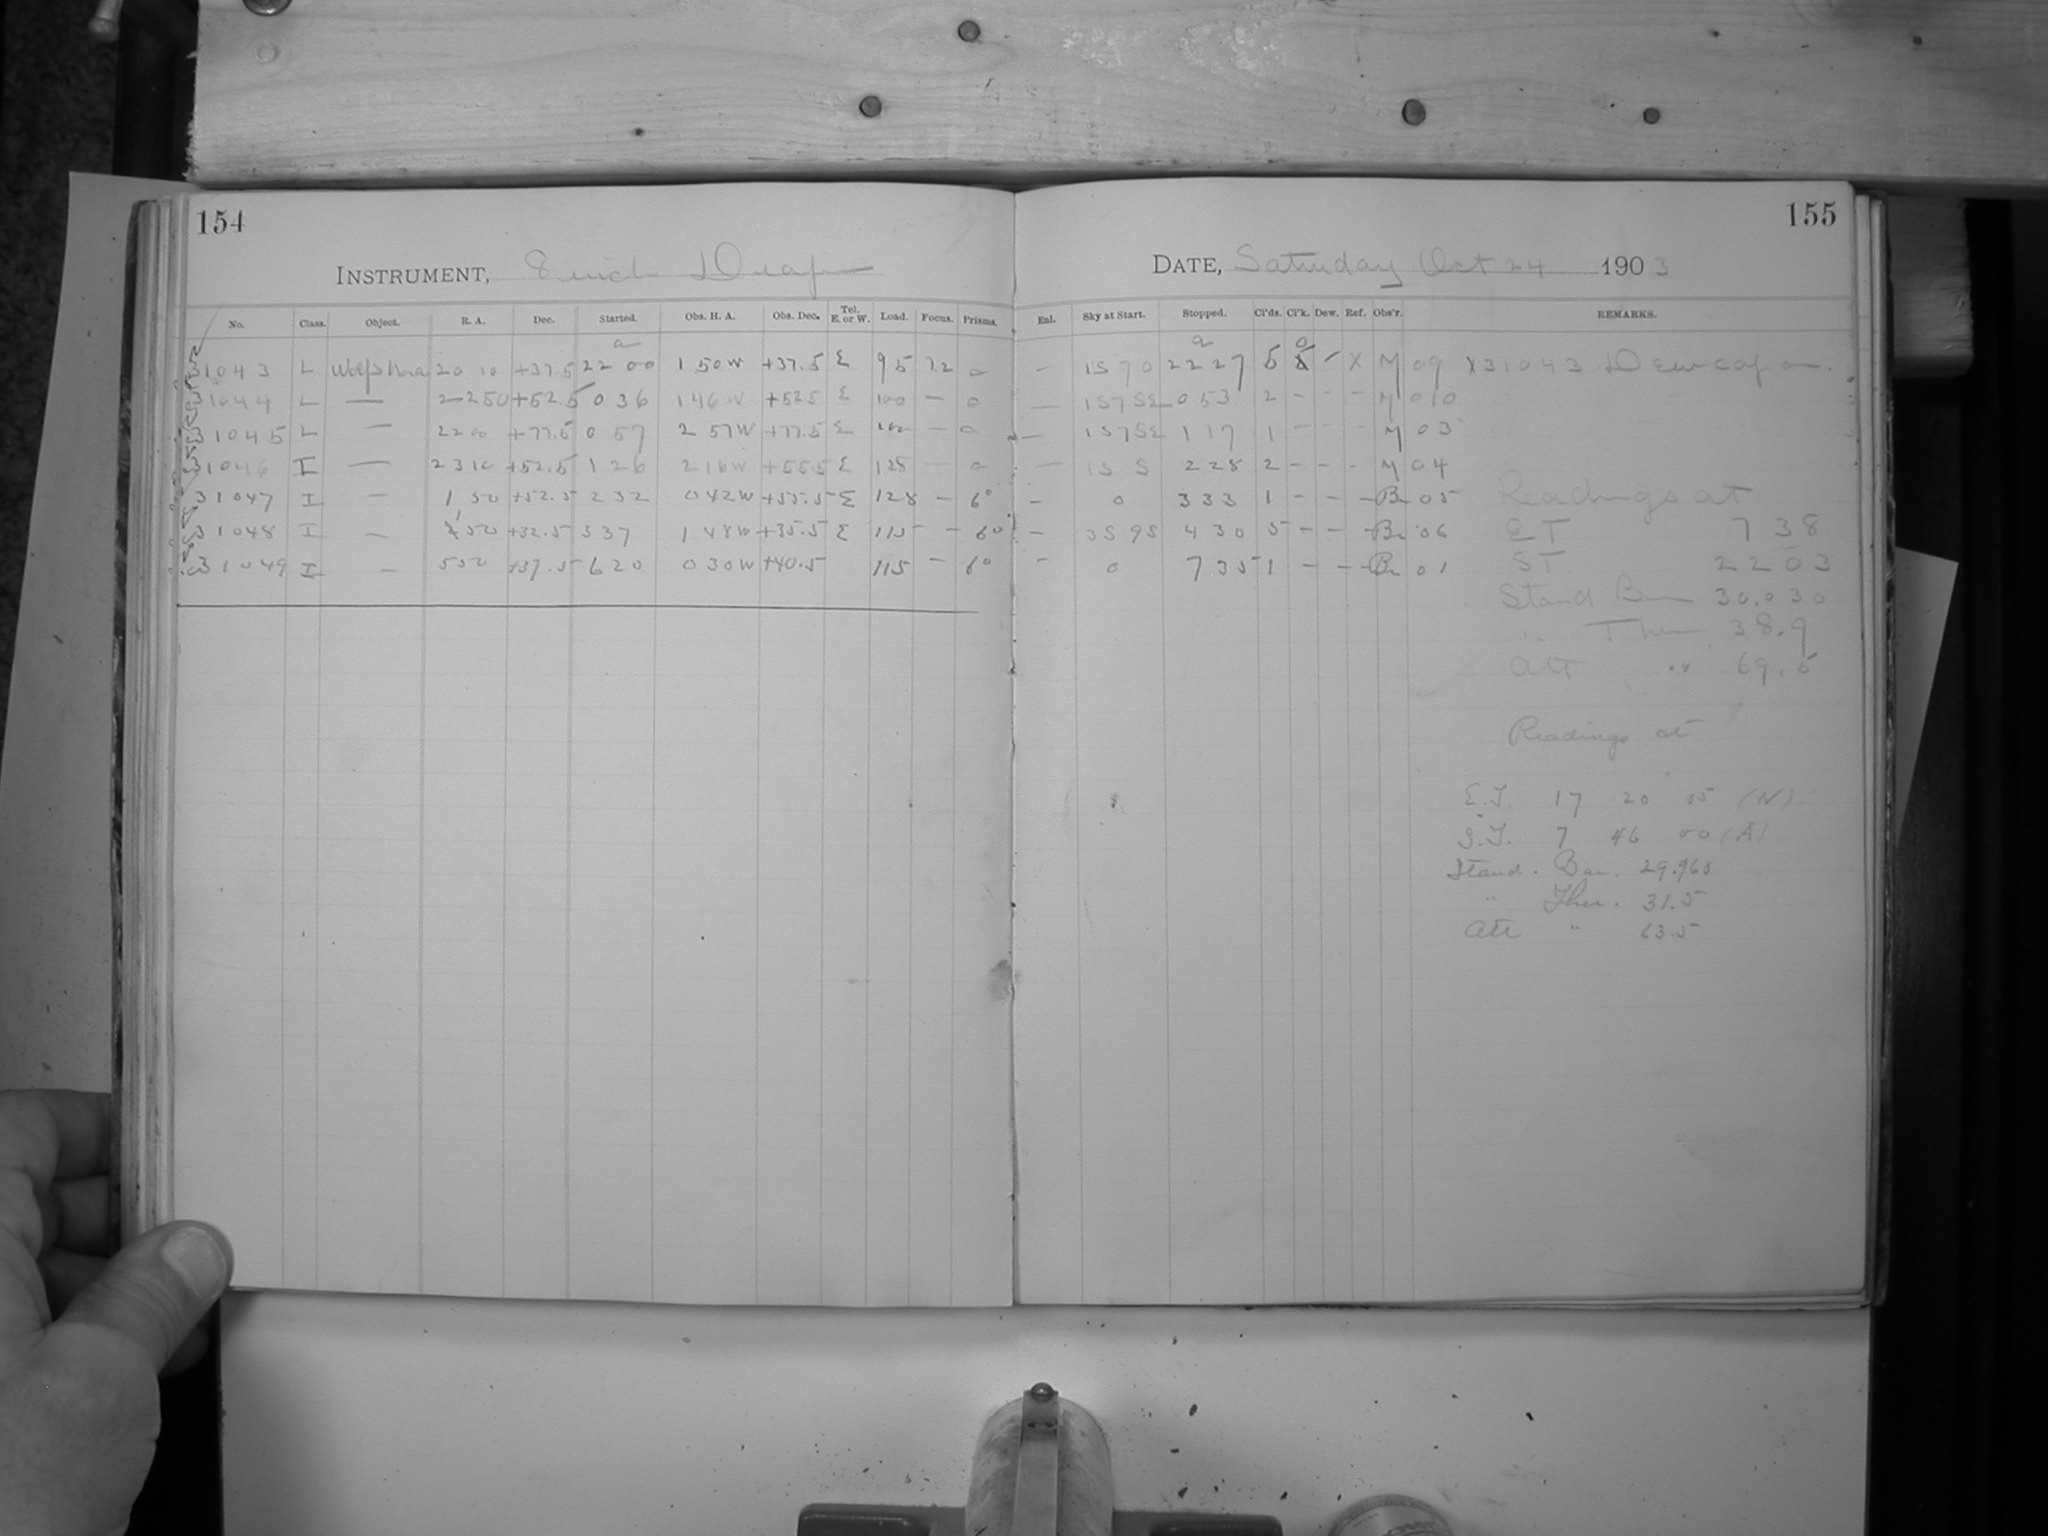 154
INSTRUMENT,
No. Class. Object. R. A. Dec. Started. Obs. H. A. Obs. Dec. Tel. E. or W. Load. Focus. Prisms.
31043 L 20 10 +37.5 22 00 1 50 W +37.5 E 95 72 0
31044 L — 2250 +52.5 0 36 1 46 W +52.5 E 100 — 0
31045 L — 22 00 +77.5 0 57 2 57 W +77.5 E 100 — 0
31046 I — 23 10 +52.5 1 26 2 16 W +55.5 E 128 — 0
31047 I — 1 50 +52.5 2 32 0 42 W +55.5 E 128 — 6°
31048 I — 1 50 +32.5 3 37 1 48 W +35.5 E 115 — 6°
31049 I — 5 50 +37.5 6 20 0 30 W +40.5 115 — 6°
155
DATE, Saturday Oct 24 1903
Enl. Sky at Start. Stopped. Cl'ds. Cl'k. Dew. Ref. Obs'r. REMARKS.
— 1S 7 0 22 27 5 – X M 09 X31043 Dewcap on.
— 1S 7 SE 0 53 2 – – – M 010
— 1S 7 SE 1 17 1 – – – M 03
— 1S S 2 28 2 – – – M 04
– 0 3 33 1 – – – Br 05 Readings at
– 3S 9S 4 30 5 – – – Br 06 ET 7 38
– 0 7 35 1 – – – Br 01 ST 22 03
Stand Bar 30.030
" Ther 38.9
Att " 69.5
Readings at
E.T. 17 20 55 (N)
S.T. 7 46 00 (A)
Stand. Bar. 29.960
" Ther. 31.5
Att " 63.5